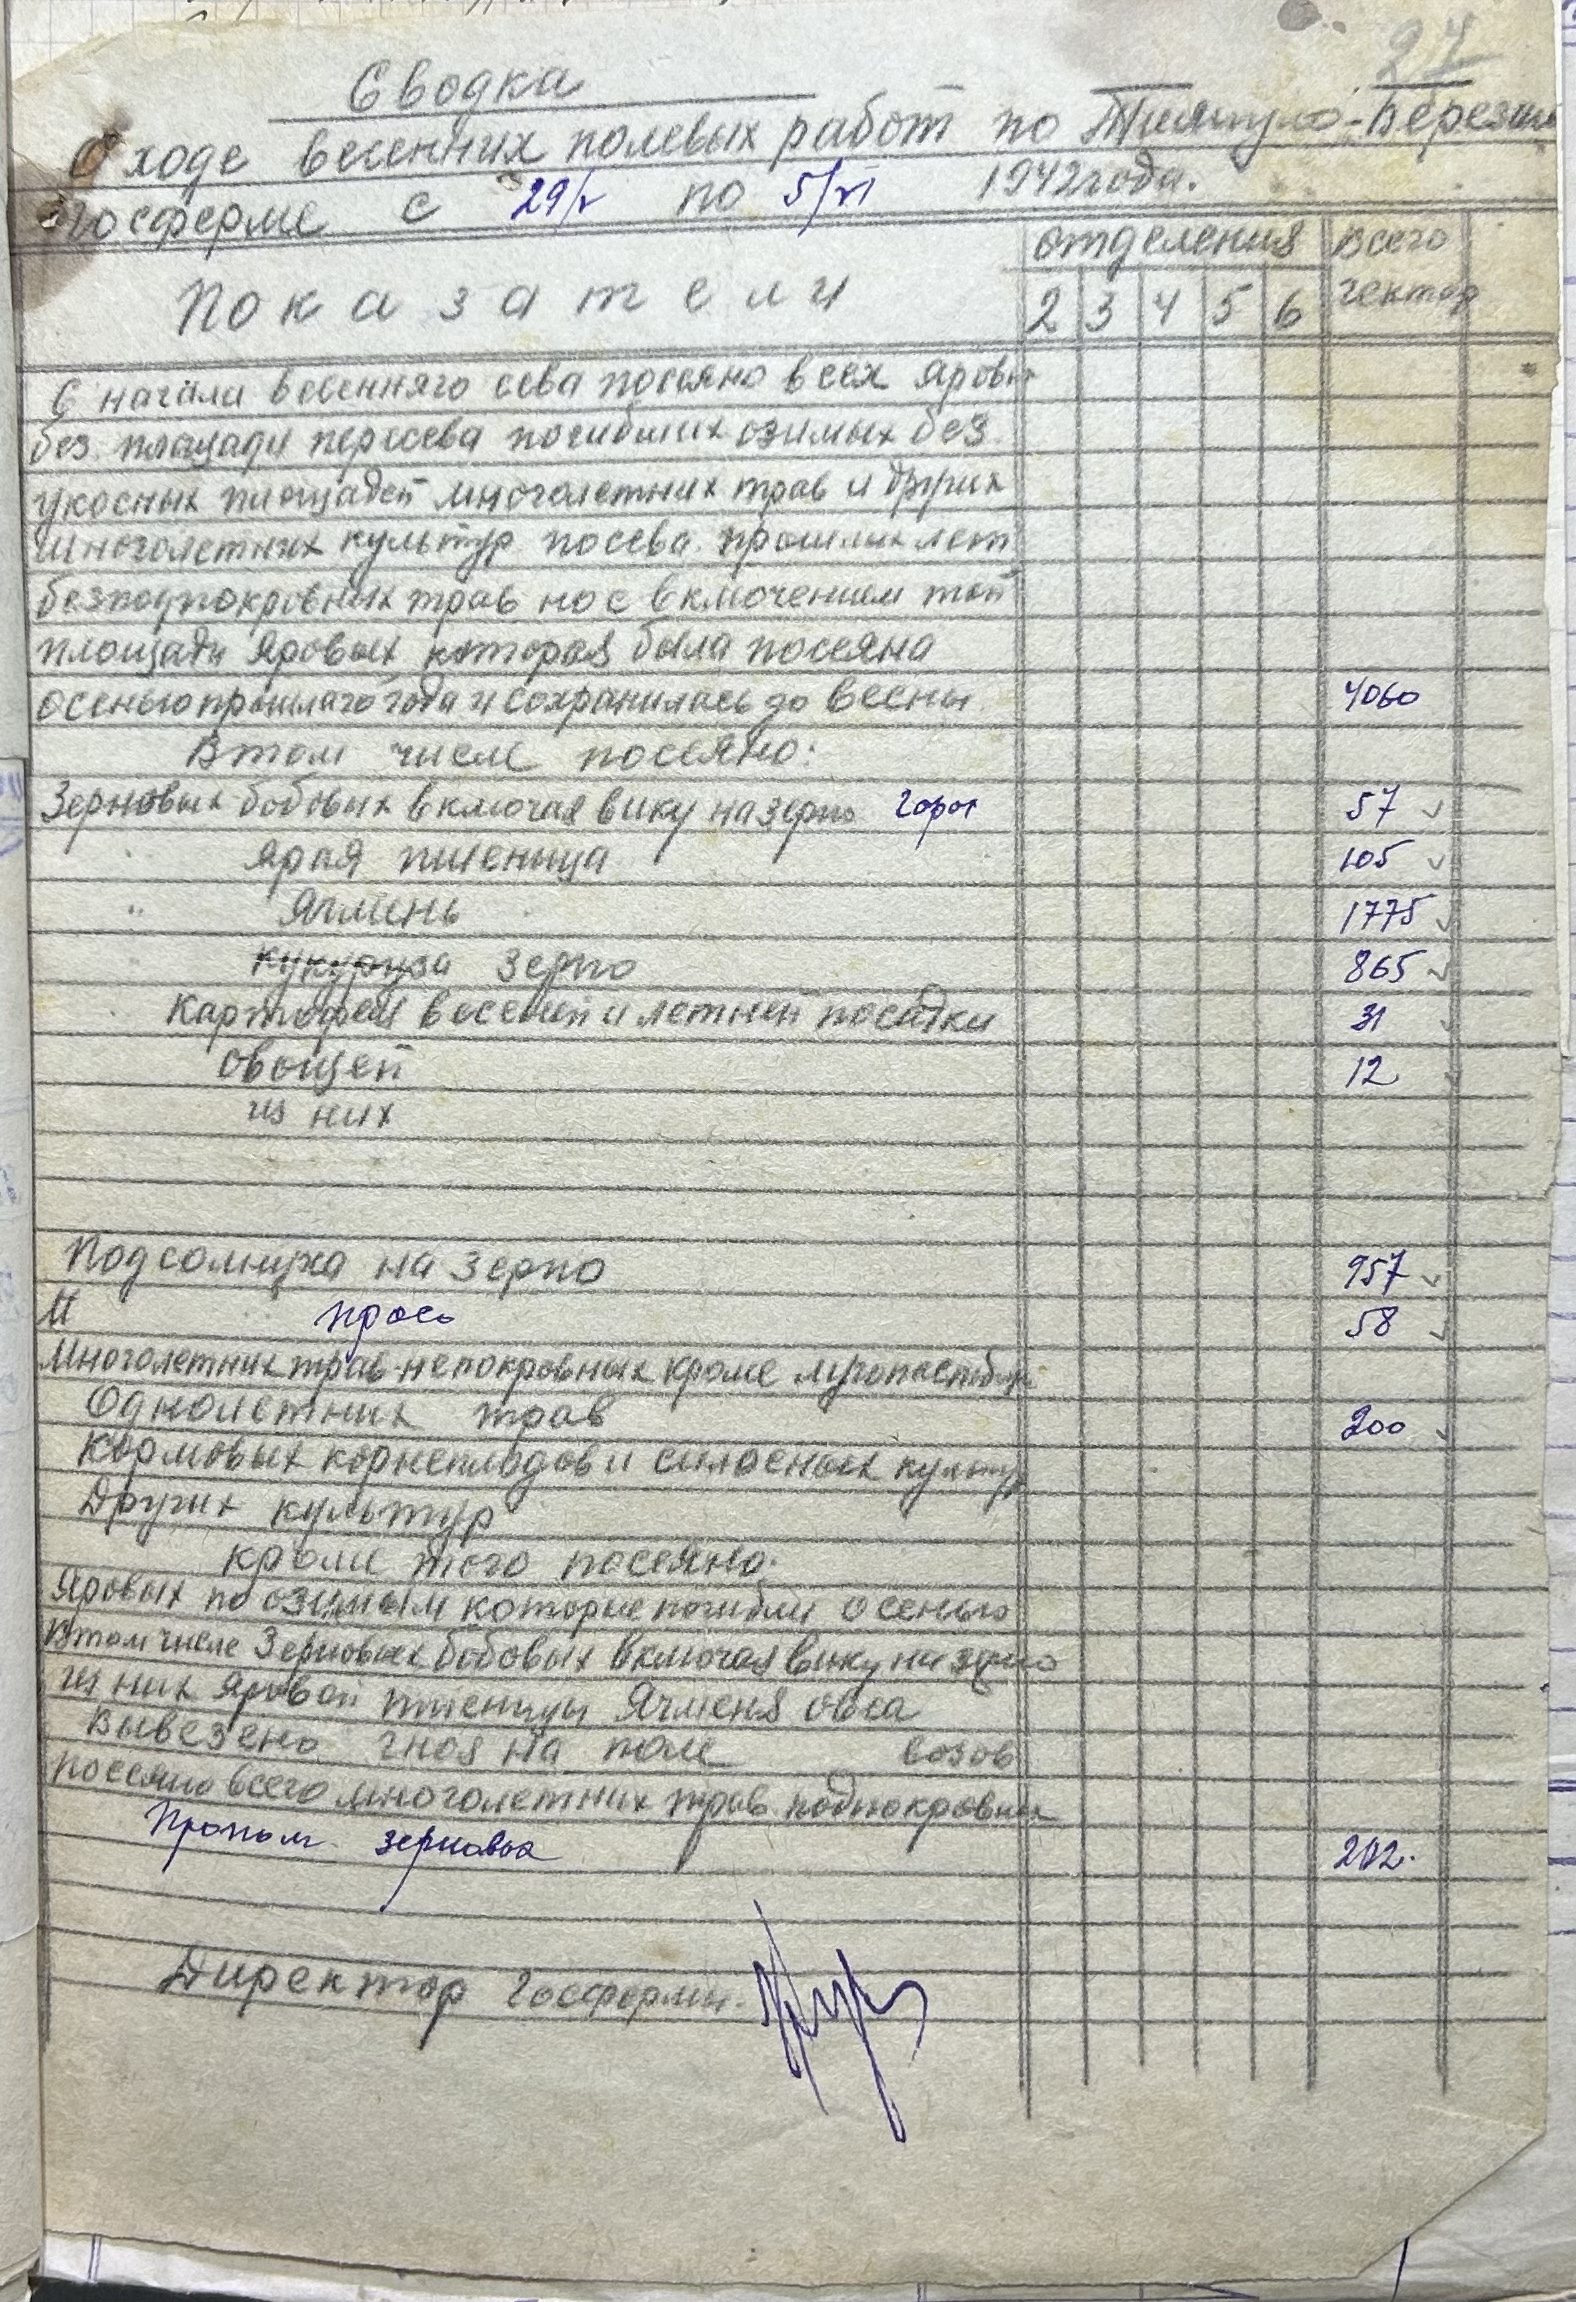 27
Сводка
О ходе весенних полевых работ по Тилигуло-Березан
госферме с 29/V по 5/VI 1942 года.
Показатели отделения всего
2 3 4 5 6 гектар
С начала весенняго сева посеяно всех яровых
без площади пересева погибших озимых без
укосных площадей многолетних трав и других
многолетних культур посева прошлых лет
безподпокровных трав но с включением той
площади яровых которая была посеяна
осенью прошлаго года и сохранилась до весны 4060
В том числе посеяно:
Зерновых бобовых включая вику на зерно горох 57
" ярая пшеница 105
" Ячмень 1775
" кукуруза зерно 865
" Картофеля весеней и летней посадки 31
овощей 12
из них
Подсолнуха на зерно 957
М просо 58
Многолетних трав непокровных кроме лугопастбищ
Однолетних трав 200
Кормовых корнеплодов и силосных культур
Других культур
кроме того посеяно:
Яровых по озимым которые погибли осенью
В том числе Зерновых бобовых включая вику на зерно
из них яровой пшеницы Ячменя овса
Вывезено гноя на поле возов
посеяно всего многолетних трав подпокровных
Пропол. зерновых 202.
Директор Госфермы.